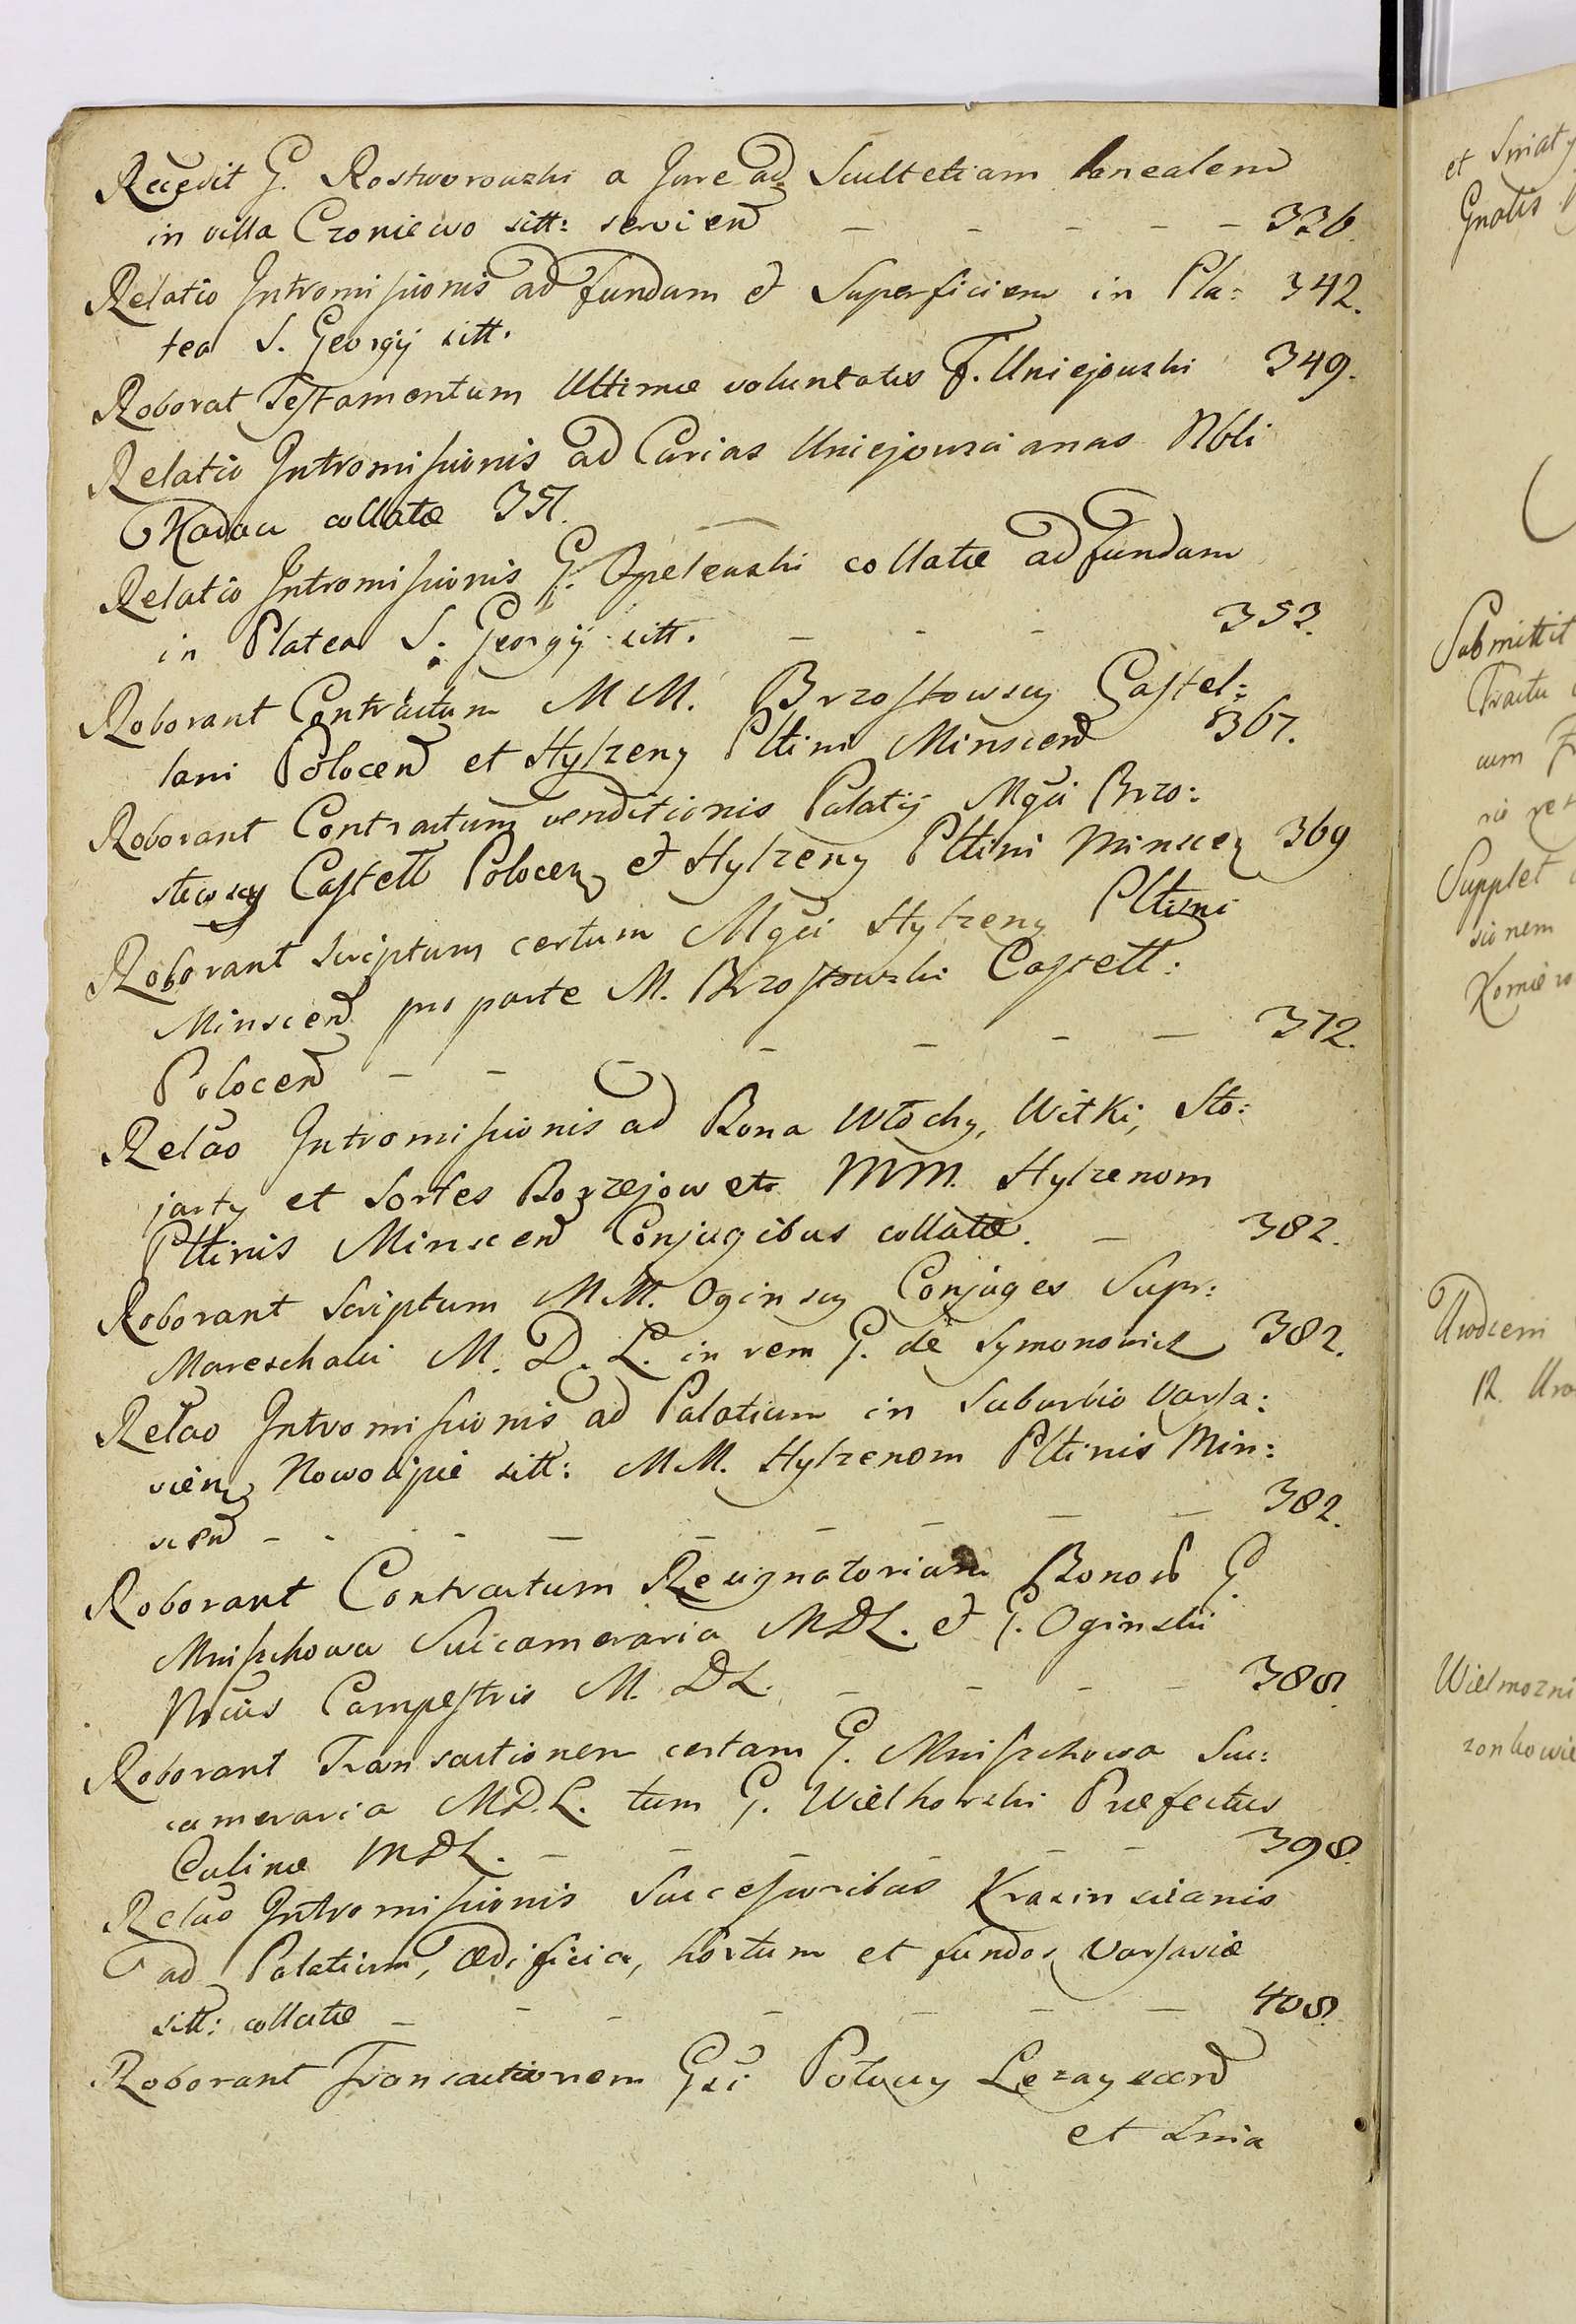 Recedit G. Rostworowski a Jure ad Scultetiam lanealem
in villa Czoniewo sitt: servien – – – – – 336.
Relatio Intromissionis ad fundum et Superficiem in Pla: 342.
tea S. Georgij sitt.
Roborat Testamentum Ultimæ voluntatis F. Uniejowski 349.
Relatio Intromissionis ad Curias Uniejowscianas Nbli
collatæ 351.
Relatio Intromissionis G. Opelewski collatæ ad fundum
in Platea S. Georgij sitt. – – – 353.
Roborant Contractum MM. Brzostowscy Castel:
lani Polocen et Hylzeny Pltini Minscen 367.
Roborant Contractum venditionis Palatij Mgci Brzo:
stowscy Castell Polocen et Hylzeny Pltini Minscen 369
Roborant Scriptum certum Mgci Hylzeny Pltini
Minscen pro parte M. Brzostowski Castell:
Polocen – – – – – – – 372.
Relao Intromissionis ad Bona Włochy, Witki, Sto:
jarty et Sortes Bozrejow etc MM. Hylzenom
Pltinis Minscen Conjugibus collatæ. – 382.
Roborant Scriptum MM. Oginscy Conjuges Supr:
Mareschalci M. D. L. in rem G. de Symonowicz 382.
Relao Intromissionis ad Palatium in Suburbio Varsa:
vien Nowolipie sitt: MM. Hylzenom Pltinis Min:
scen – – – – – – – – – 382.
Roborant Contractum Resignatorium Bonor G.
Mniszchowa Succameraria MDL. et G. Oginski
Nrius Campestris M. DL. – – – – 388.
Roborant Transactionem certam G. Mniszchowa Suc:
cameraria MD.L. tum G. Wielhorski Præfectus
Culinæ MDL. – – – – – – 398.
Relao Intromissionis Successoribus Krasinscianis
ad Palatium, ædificia, hortum et fundos Varsaviæ
sitt: collatæ – – – – – – – 408.
Roborant Transactionem Gsi Potoccy Lezayscen
et Snia
et Sniaty
Gnalis
Submittit
Tractu
cum
Supplet
sionem
Komiero
Urodzeni
12. Uro
Wielmozni